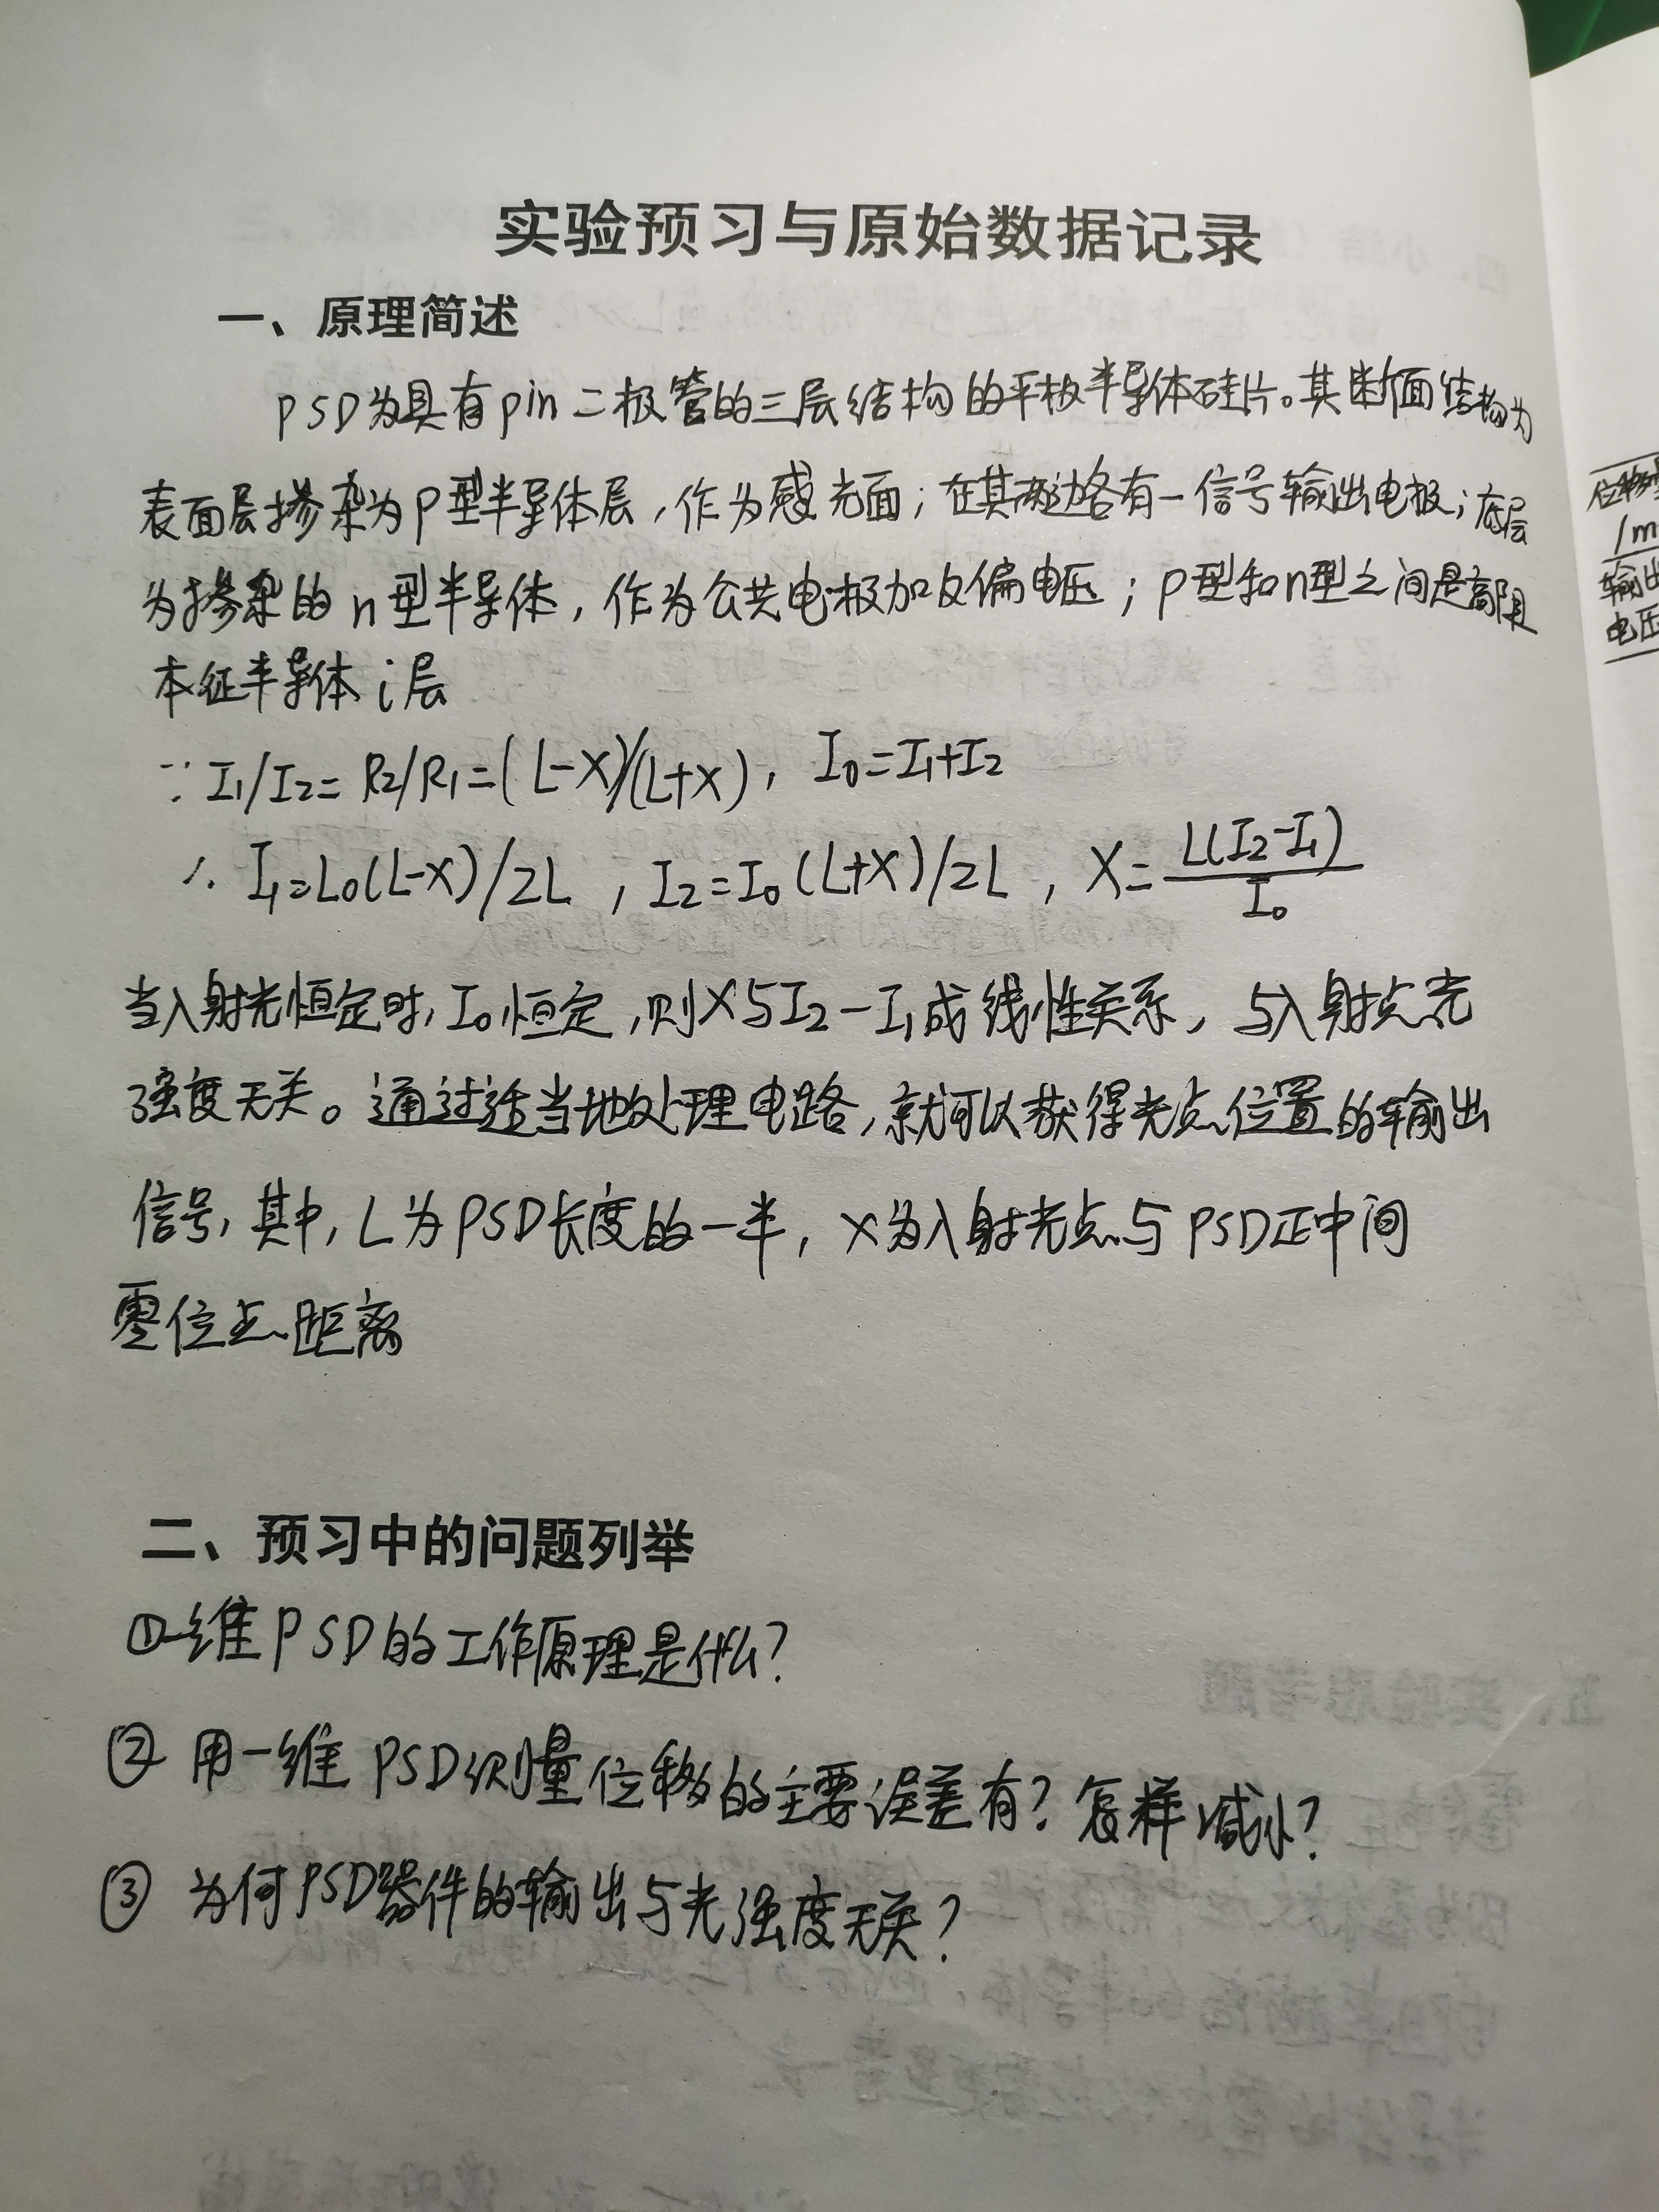 实验预习与原始数据记录
一、原理简述
PSD为具有pin二极管的三层结构的平板半导体硅片。其断面结构为
表面层掺杂为P型半导体层,作为感光面;在其两边各有一信号输出电极;底层
为掺杂的n型半导体,作为公共电极加反偏电压;P型和n型之间是高阻
本征半导体i层
∵I1/I2=R2/R1=(L-X)/(L+X),I0=I1+I2
∴I1=L0(L-X)/2L,I2=I0(L+X)/2L,X=L(I2-I1)/I0
当入射光恒定时,I0恒定,则X与I2-I1成线性关系,与入射点光
强度无关。通过适当地处理电路,就可以获得光点位置的输出
信号,其中,L为PSD长度的一半,X为入射光点与PSD正中间
零位点距离
二、预习中的问题列举
①一维PSD的工作原理是什么?
②用一维PSD测量位移的主要误差有?怎样减小?
③为何PSD器件的输出与光强度无关?
/m
输出
电压